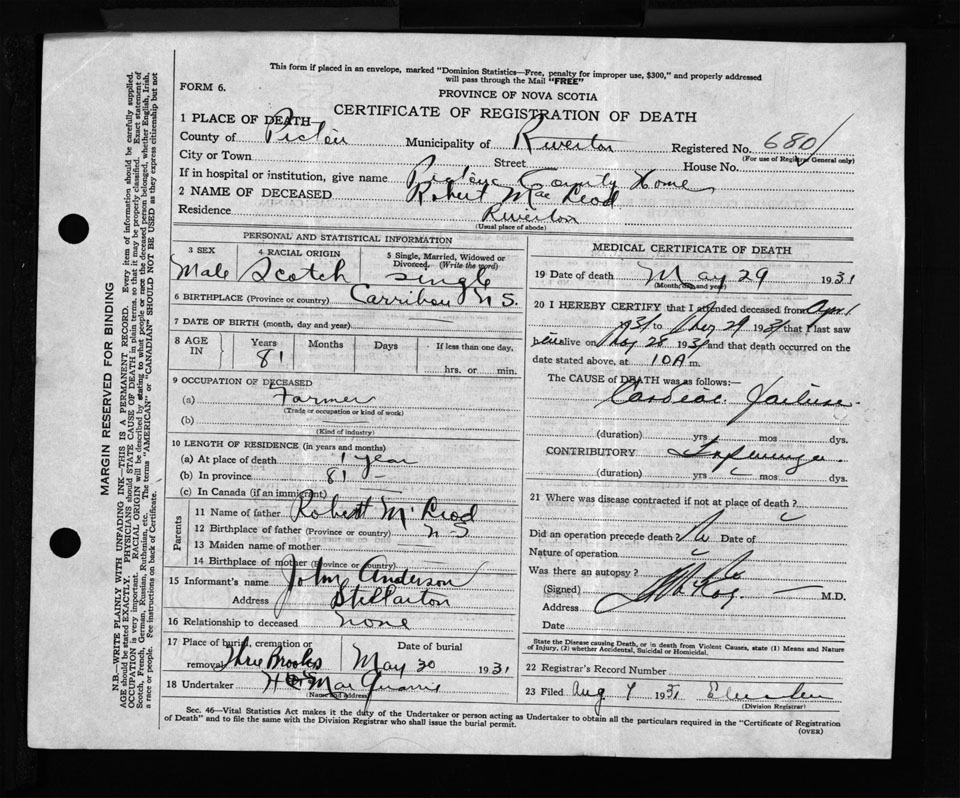 This form if placed in an envelope, marked "Dominion Statistics—Free, penalty for improper use, $300," and properly addressed
will pass through the Mail "FREE"
FORM 6.
PROVINCE OF NOVA SCOTIA
CERTIFICATE OF REGISTRATION OF DEATH
1 PLACE OF DEATH
County of Pictou Municipality of Riverton Registered No. 680
(For use of Registrar General only)
City or Town Street House No.
If in hospital or institution, give name Pictou County Home
2 NAME OF DECEASED Robert MacLeod
Residence Riverton
(Usual place of abode)
PERSONAL AND STATISTICAL INFORMATION
3 SEX 4 RACIAL ORIGIN 5 Single, Married, Widowed or Divorced. (Write the word)
Male Scotch single
6 BIRTHPLACE (Province or country) Carribou N S.
7 DATE OF BIRTH (month, day and year) —
8 AGE IN Years Months Days If less than one day,
81 hrs. or min.
9 OCCUPATION OF DECEASED
(a) Farmer
(Trade or occupation or kind of work)
(b)
(Kind of industry)
10 LENGTH OF RESIDENCE (in years and months)
(a) At place of death 1 year
(b) In province 81 —
(c) In Canada (if an immigrant) —
Parents
11 Name of father Robert McLeod
12 Birthplace of father (Province or country) N S
13 Maiden name of mother —
14 Birthplace of mother (Province or country) —
15 Informant's name John Anderson
Address Stellarton
16 Relationship to deceased none
17 Place of burial, cremation or removal Three Brooks
Date of burial May 30 1931
18 Undertaker
Name and address
MEDICAL CERTIFICATE OF DEATH
19 Date of death May 29 1931
(Month, day and year)
20 I HEREBY CERTIFY that I attended deceased from Apr 1
1931 to May 29 1931 that I last saw
alive on May 28 1931 and that death occurred on the
date stated above, at 10 A m.
The CAUSE OF DEATH was as follows:—
Cardiac Failure
(duration) yrs mos dys.
CONTRIBUTORY
(duration) yrs mos dys.
21 Where was disease contracted if not at place of death?
Did an operation precede death? No Date of
Nature of operation
Was there an autopsy?
(Signed) M.D.
Address
Date
State the Disease causing Death, or in death from Violent Causes, state (1) Means and Nature
of Injury, (2) whether Accidental, Suicidal or Homicidal.
22 Registrar's Record Number
23 Filed Aug 7 1931
(Division Registrar)
Sec. 46—Vital Statistics Act makes it the duty of the Undertaker or person acting as Undertaker to obtain all the particulars required in the "Certificate of Registration
of Death" and to file the same with the Division Registrar who shall issue the burial permit.
(OVER)
MARGIN RESERVED FOR BINDING
N.B.—WRITE PLAINLY WITH UNFADING INK—THIS IS A PERMANENT RECORD. Every item of information should be carefully supplied.
AGE should be stated EXACTLY. PHYSICIANS should STATE CAUSE OF DEATH in plain terms, so that it may be properly classified. Exact statement of
OCCUPATION is very important. RACIAL ORIGIN will be described by stating to what people or race the deceased person belonged, whether English, Irish,
Scotch, French, German, Russian, Ruthenian, etc. The terms "AMERICAN" or "CANADIAN" SHOULD NOT BE USED as they express citizenship but not
a race or people. See instructions on back of Certificate.